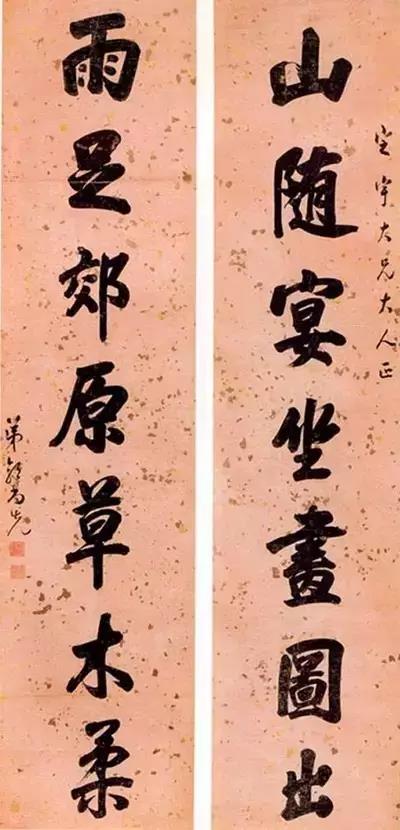 定宇大兄大人正
山随宴坐畫圖出
雨足郊原草木柔
弟郭尚先